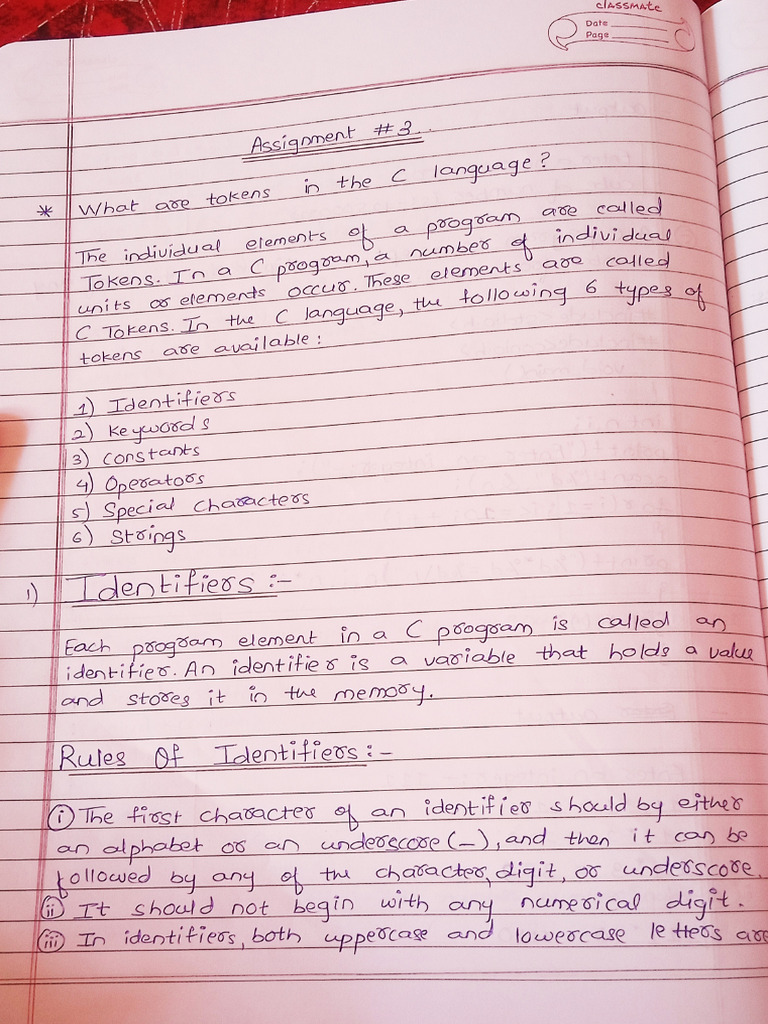 classmate
Date
Page
Assignment #3..
* What are tokens in the C language?
The individual elements of a program are called
Tokens. In a C program, a number of individual
units or elements occur. These elements are called
C Tokens. In the C language, the following 6 types of
tokens are available:
1) Identifiers
2) Keywords
3) Constants
4) Operators
5) Special Characters
6) Strings
1) Identifiers :-
Each program element in a C program is called an
identifier. An identifier is a variable that holds a value
and stores it in the memory.
Rules Of Identifiers:-
(i) The first character of an identifier should by either
an alphabet or an underscore (_), and then it can be
followed by any of the character, digit, or underscore.
(ii) It should not begin with any numerical digit.
(iii) In identifiers, both uppercase and lowercase letters are